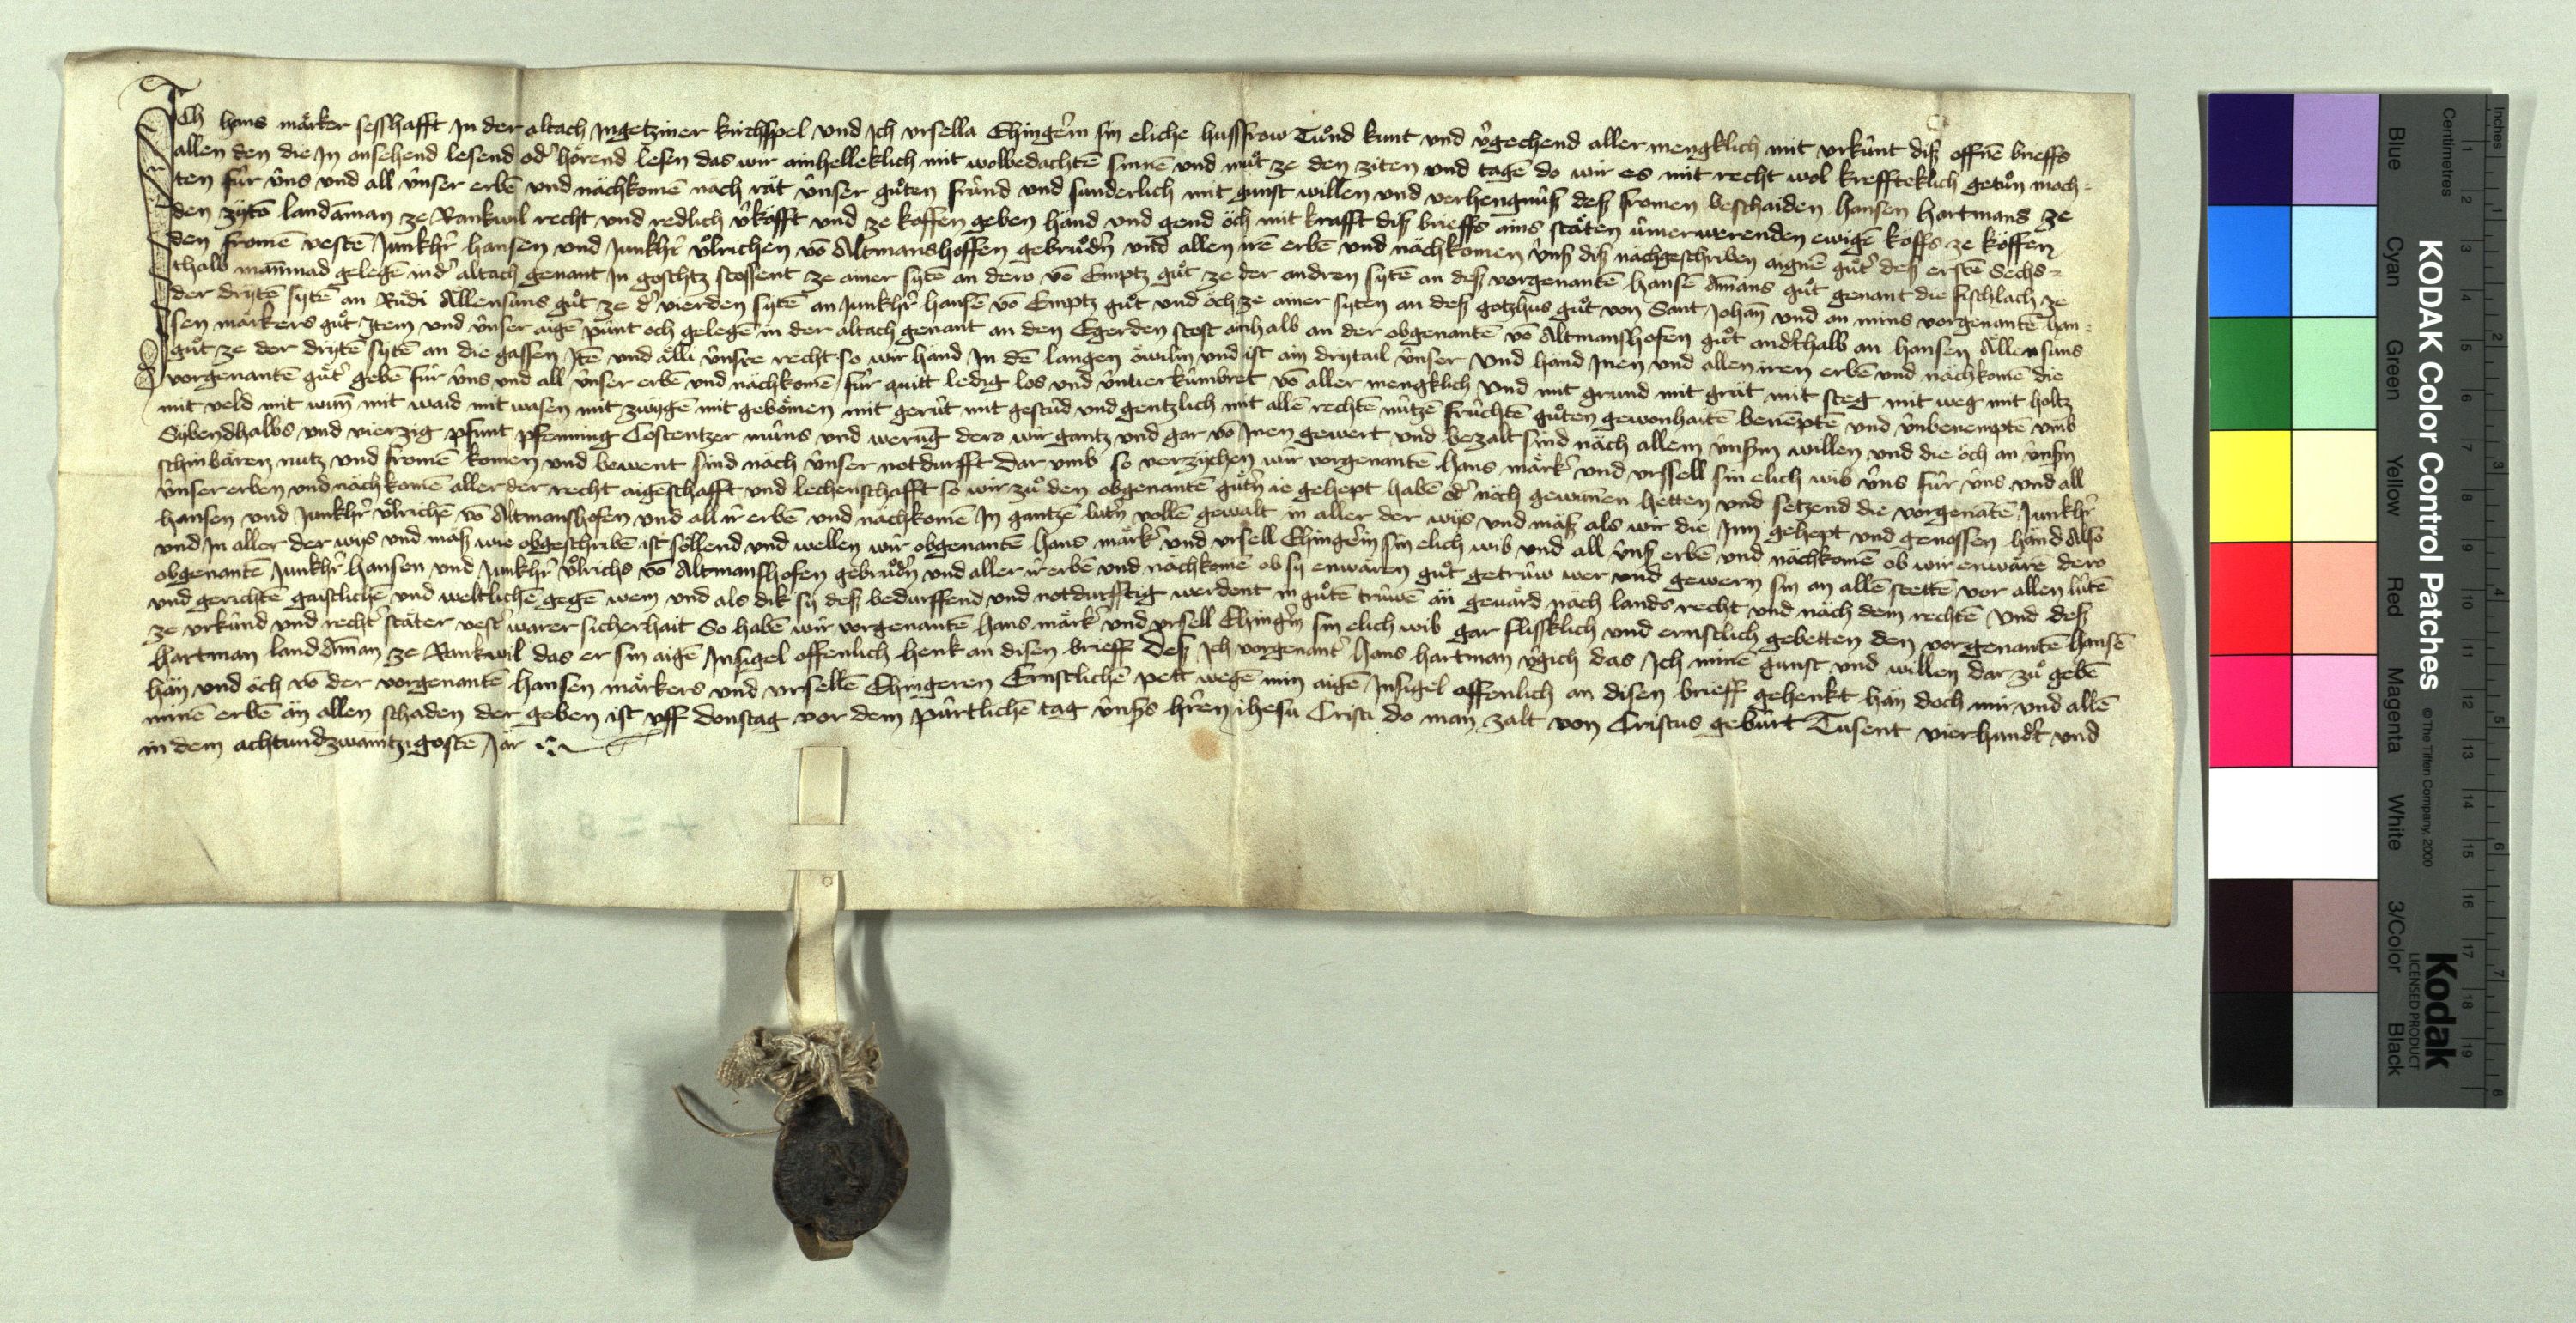 Ich hans märker sesshafft in der altach in getziner kirchspel vnd ich vrsella Ehingerin sin eliche husfrow Tuͦnd kunt vnd v̉gechend aller mengklich mit vrkúnt diß offnē brieffs
allen den die in ansehend lesend od̉ hörend lesen das wir ainhelleklich mit wolbedachtē sinnē vnd muͦt ze den ziten vnd tagē do wir es mit recht wol krefftteklich getuͦn moch=
ten fúr v́ns vnd all v́nser erbē vnd nächkomē nach rät v́nser guͦten frúnd vnd sunderlich mit gunst willen vnd verhengnúß deß fromen beschaiden hansen hartmans ze
den zÿtē landāman ze Rankwil recht vnd redlich v̉köfft vnd ze köffen geben händ vnd gend öch mit krafft diß brieffs ains stäten úmerwerenden ewigē köffs ze köffen
den fromē vestē Junkhr̉ hansen vnd Junkhr̉ vͦlrichen vō Altmanshoffen gebruͦdn̉ vnd allen irē erbē vnd nächkomen v́nß diß nächgeschriben aignē guͤt̉ deß erstē Sechs=
thalb manmad gelegē ind̉ altach genant in goschtz stossent ze ainer sÿtē an dero vō Emptz guͦt ze der andren sÿtē an deß vorgenantē hansē Am̄ans guͦt genant die fischlach ze
der drÿtē sÿtē an Ruͤdi Ällensuns guͦt ze d̉ vierden sÿtē an Junkhr̉ hansē vō Emptz guͦt vnd öch ze ainer sÿten an deß gotzhus guͦt von Sant Johan̄ vnd an mins vorgenantē han=
sen märkers guͦt Item vnd v́nser aigē púnt och gelegē in der altach genant an den Egerden stost ainhalb an der obgenantē vō Altmanshofen guͦt and̉thalb an hansen Ällensuns
guͦt ze der drÿtē sÿtē an die gassen Itē vnd älli v́nsre recht so wir händ in dē langen öwilin vnd ist ain drÿtail v́nser vnd hand inen vnd allen iren erben vnd nächkomē die
vorgenantē guͤt̉ gebē fúr v́ns vnd all v́nser erbē vnd nächkomē fúr quitt ledig los vnd v́nuerkúmbret vō aller mengklich vnd mit grund mit grät mit steg mit weg mit holtz
mit veld mit wun̄ mit waid mit wasen mit zwÿgē mit geböͤmen mit gerút mit gestúd vnd gentzlich mit allē rechtē nútzē frúchtē guͦten gewonhaitē benēptē vnd v́nbenemptē vmb
Sÿbendhalbs vnd vierzig pfunt pfenning Costentzer múns vnd werūg dero wir gantz vnd gar vō inen gewert vnd bezalt sind näch allem v́nsm̉ willen vnd die öch an v́nsn̉
schinbären nutz vnd fromē komen vnd bewent sind näch v́nser notdurfft Dar vmb so verzÿchen wir vorgenantē hans märk̉ vnd vrsell sin elich wib v́ns fúr v́ns vnd all
v́nser erben vnd nächkomē aller der recht aigēschafft vnd lechenschafft so wir zuͦ den obgenantē guͤtn̉ ie gehept habē od̉ näch gewun̄en hetten vnd setzend die vorgenātē Junkhr̉
hansen vnd Junkhr̉ vͦlrichē vō Altmanshofen vnd all ir̉ erbē vnd nächkomē in gantzē lutn̉ vollē gewalt in aller der wÿs vnd mäß als wir die inn gehept vnd genossen händ Also
vnd in aller der wÿs vnd mäß wie obgeschribē ist söllend vnd wellen wir obgenantē hans märk̉ vnd vrsell Ehingerin sin elich wib vnd all v́nß erbē vnd nächkomē ob wir enwärē dero
obgenantē Junkhr̉ hansen vnd Junkhr̉ vͦlrichs vō Altmanshofen gebruͦdn̉ vnd aller ir̉ erbē vnd nächkomē ob sÿ enwären guͦt getrúw wer vnd gewern sin an allē stettē vor allen lútē
vnd gerichtē gaistlichē vnd weltlichē gegē wem vnd als dik sÿ deß bedurffend vnd notdurfftig werdent in guͦtē trúwē än geuärd näch lands recht vnd näch dem rechtē Vnd deß
ze vrkúnd vnd recht̉ stäter vest̉ warer sicherhait So habē wir vorgenantē hans märk̉ vnd vrsell Ehingr̉in sin elich wib gar flissklich vnd ernstlich gebetten den vorgenantē hansē
hartman land Am̄an ze Rankwil das er sin aigē Insigel offenlich henk an disen brieff Deß ich vorgenant̉ hans hartman v̉gich das ich minē gunst vnd willen dar zuͦ gebē
hän vnd öch vō der vorgenantē hansen märkers vnd vrsellē Ehingeren Ernstlichē pett wegē min aigē Insigel offenlich an disen brieff gehenkt hän doch mir vnd allē
minē erbē än allen schaden der geben ist vff donstag vor dem púrtlichē tag v́nsß hr̉en ihesu Cristi do man zalt von Cristus gebúrt Tusent vierhund̉t vnd
in dem achtundzwaintzigostē Jär
KODAK Color Control Patches
© The Tiffen Company, 2000
Kodak
LICENSED PRODUCT
Blue
Cyan
Green
Yellow
Red
Magenta
White
3/Color
Black
Centimetres
Inches
1 2 3 4 5 6 7 8 9 10 11 12 13 14 15 16 17 18 19
1 2 3 4 5 6 7 8